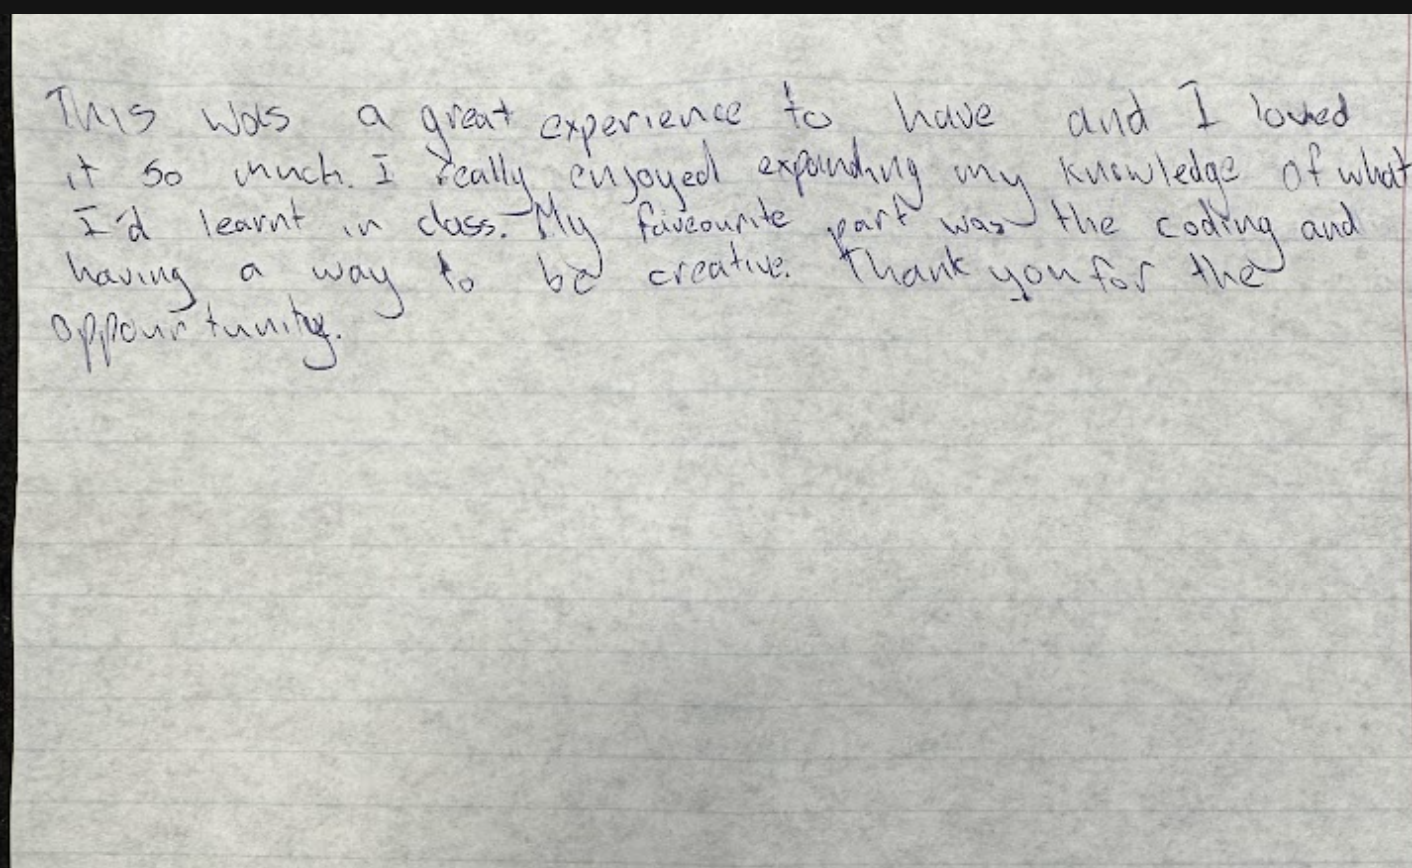 This was a great experience to have and I loved
it so much. I really enjoyed expanding my knowledge of what
I'd learnt in class. My faveourite part was the coding and
having a way to be creative. Thank you for the
oppourtunity.